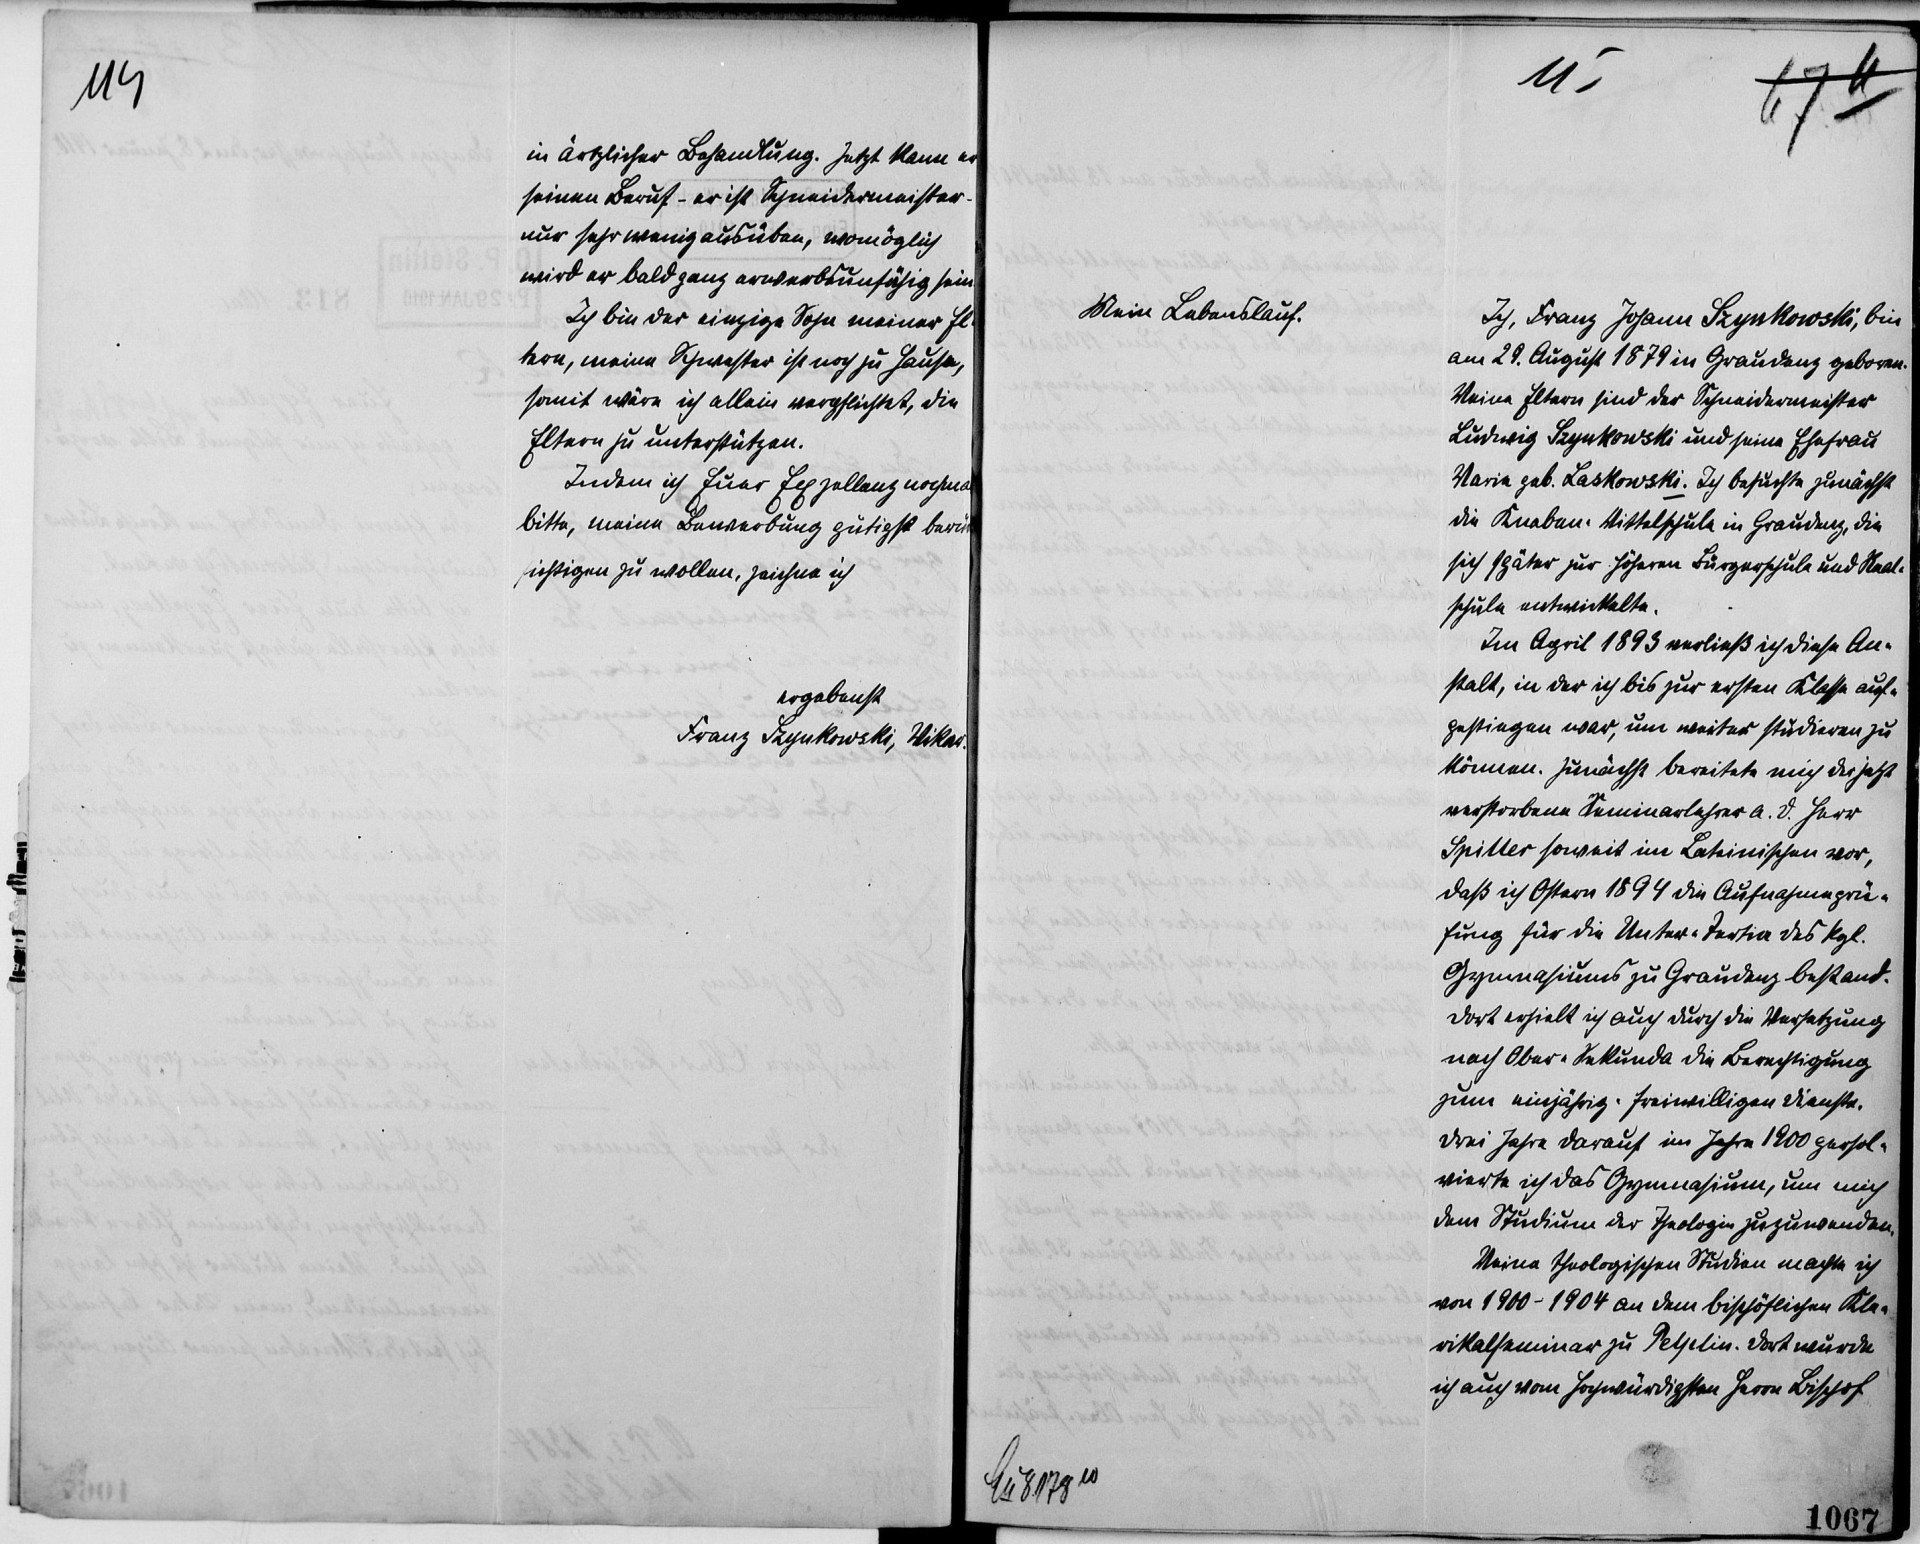 114
in ärtzlicher Behandlung. Jetzt kann er
seinen Beruf - er ist Schneidermeister -
nur sehr wenig ausüben, womöglich
wird er bald ganz erwerbsunfähig sein
Ich bin der einzige Sohn meiner El-
tern, meine Schwester ist noch zu Hause,
somit wäre ich allein verpflichtet, die
Eltern zu unterstützen.
Indem ich Euer Exzellenz nochma
bitte, meine Bewerbung gütigst berü
ichtigen zu wollen, zeichne ich
ergebenst
Franz Szynkowski, Vikar.
115
67
Mein Lebenslauf.
Ich, Franz Johann Szynkowski, bin
am 29. August 1879 in Graudenz geboren.
Meine Eltern sind der Schneidermeister
Ludwig Szynkowski und seine Ehefrau
Marie geb. Laskowski. Ich besuchte zunächst
die Knaben-Mittelschule in Graudenz, die
sich später zur höheren Bürgerschule und Real-
schule entwickelte.
Im April 1893 verließ ich diese An-
stalt, in der ich bis zur ersten Klasse auf-
gestiegen war, um weiter studieren zu
können. Zunächst bereitete mich der jetzt
verstorbene Seminarlehrer a. D. Herr
Spitter soweit im Lateinischen vor,
daß ich Ostern 1894 die Aufnahmeprü-
fung für die Unter-Tertia des Kgl.
Gymnasiums zu Graudenz bestand.
Dort erhielt ich auch durch die Versetzung
nach Ober-Sekunda die Berechtigung
zum einjährig-freiwilligen Dienste.
Drei Jahre darauf im Jahre 1900 persol-
vierte ich das Gymnasium, um mich
dem Studium der Theologie zuzuwenden.
Meine theologischen Studien machte ich
von 1900-1904 an dem bischöflichen Kle-
rikalseminar zu Pelplin. Dort wurde
ich auch vom hochwürdigsten Herrn Bischof
1067